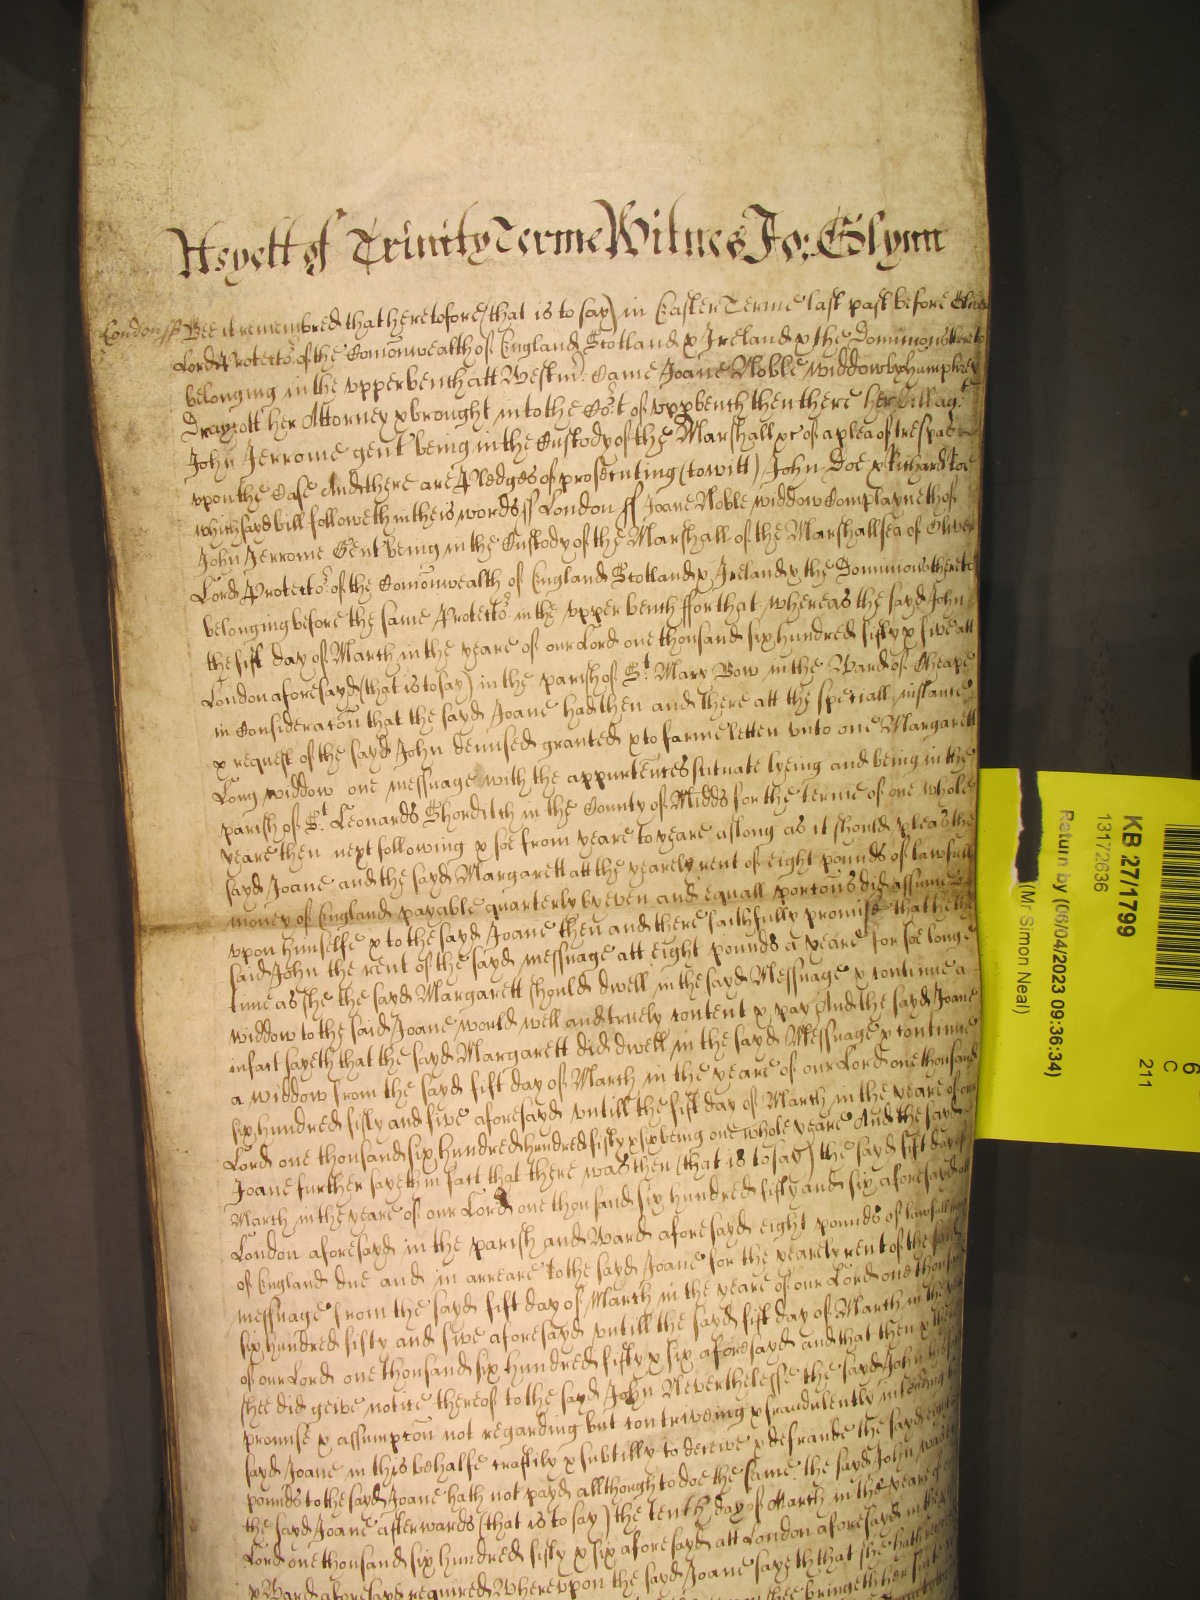 As yett of Trinity Terme Witnes Jo: Glynn
London ss Bee it remembred that heretofore (that is to say) in Easter Terme last past before Oliver
Lord Protector of the Comonwealth of England Scotland & Ireland & the Dominions thereto
belonging in the upper bench att Westm: Came Joane Noble widdow by Humphrey
Draycott her Attorney & brought into the Cort of upp bench then there her bill agt
John Jerrome gent being in the Custody of the Marshall &c of a plea of trespas
upon the Case And there are Pledges of prosecuting (to witt) John Doe & Richard Roe
which sayd bill followeth in theis words ss London ss Joane Noble widdow Complayneth of
John Jerrome Gent being in the Custody of the Marshall of the Marshallsea of Oliver
Lord Protector of the Comonwealth of England Scotland & Ireland & the Dominions thereto
belonging before the same Protector in the upper bench ffor that whereas the sayd John
the fift day of March in the yeare of our Lord one thousand six hundred fifty & five att
London aforesayd (that is to say) in the parish of St Mary Bow in the Ward of Cheape
in Consideracon that the sayd Joane had then and there att the speciall instance
& request of the sayd John demised granted & to farme letten unto one Margarett
Long widdow one messuage with the appurtences scituate lyeing and being in the
parish of St Leonards Shorditch in the County of Midds for the terme of one whole
yeare then next following & soe from yeare to yeare aslong as it should please the
sayd Joane and the sayd Margarett att the yearely rent of eight pounds of lawfull
money of England payable quarterly by even and equall porcons did assume
upon himselfe & to the sayd Joane then and there faithfully promise that he the
said John the rent of the sayd messuage att eight pounds a yeare for soe longe
time as she the sayd Margarett should dwell in the sayd Messuage & continue a
widdow to the said Joane would well and truely content & pay And the sayd Joane
in fact sayeth that the sayd Margarett did dwell in the sayd Messuage & continue
a widdow from the sayd fift day of March in the yeare of our Lord one thousand
six hundred fifty and five aforesayd untill the fift day of March in the yeare of our
Lord one thousand six hundred hundred fifty & six being one whole yeare And the sayd
Joane further sayeth in fact that there was then (that is to say) the sayd fift day of
March in the yeare of our Lord one thousand six hundred fifty and six aforesayd att
London aforesayd in the parish and Ward aforesayd eight pounds of lawfull money
of England due and in arreare to the sayd Joane for the yearely rent of the sayd
messuage from the sayd fift day of March in the yeare of our Lord one thousand
six hundred fifty and five aforesayd untill the sayd fift day of March in the yeare
of our Lord one thousand six hundred fifty & six aforesayd and that then & there
shee did geive notice thereof to the sayd John Neverthelesse the sayd John his
promise & assumpcon not regarding but contriveing & fraudulently intending the
sayd Joane in this behalfe craftily & subtilly to deceive & defraude the sayd eight
pounds to the sayd Joane hath not payd allthough to doe the same the sayd John was by
the sayd Joane afterwards (that is to say) the tenth day of March in the yeare of our
Lord one thousand six hundred fifty & six aforesayd att London aforesayd in the
& Ward aforesayd required Whereupon the sayd Joane sayeth that she hath
shee bringeth her suite
KB 27/1799
13172636
Return by (06/04/2023 09:36:34)
(Mr Simon Neal)
6
C
211